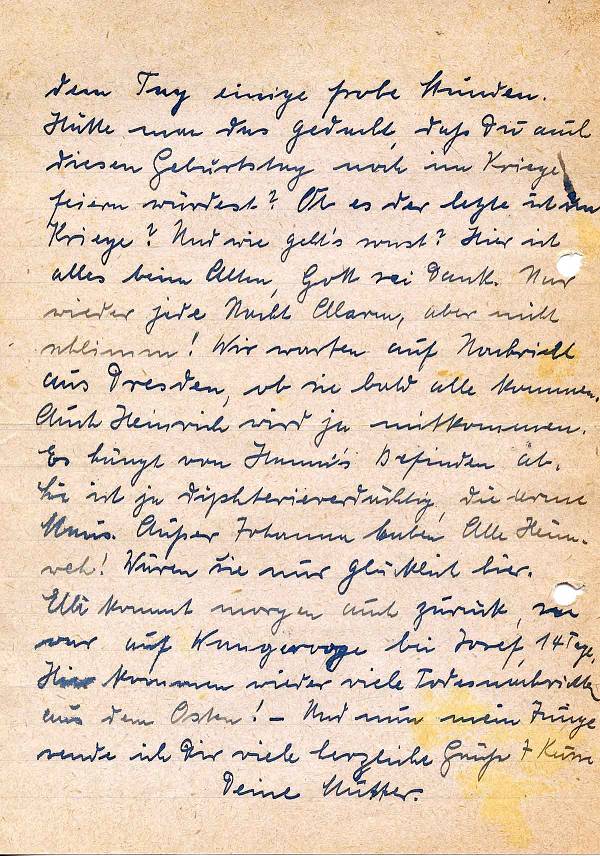 dem Tag einige frohe Stunden.
Hätte man das gedacht, daß Du auch
diesen Geburtstag noch im Kriege
feiern würdest? Ob es der letzte ist im
Kriege? Und wie geht's sonst? Hier ist
alles beim Alten, Gott sei Dank. Nur
wieder jede Nacht Alarm, aber nicht
schlimm! Wir warten auf Nachricht
aus Dresden, ob sie bald alle kommen.
Auch Heinrich wird ja mitkommen.
Es hängt von Hanni's Befinden ab.
Sie ist ja diphterieverdächtig, die arme
Maus. Außer Johanna haben Alle Heim-
weh! Wären sie nur glücklich hier.
Elli kommt morgen auch zurück, sie
war auf Wangerooge bei Josef, 14 Tage.
Hier kommen wieder viele Todesnachrichten
aus dem Osten! – Und nun mein Junge
sende ich Dir viele herzliche Grüße & Küsse
Deine Mutter.